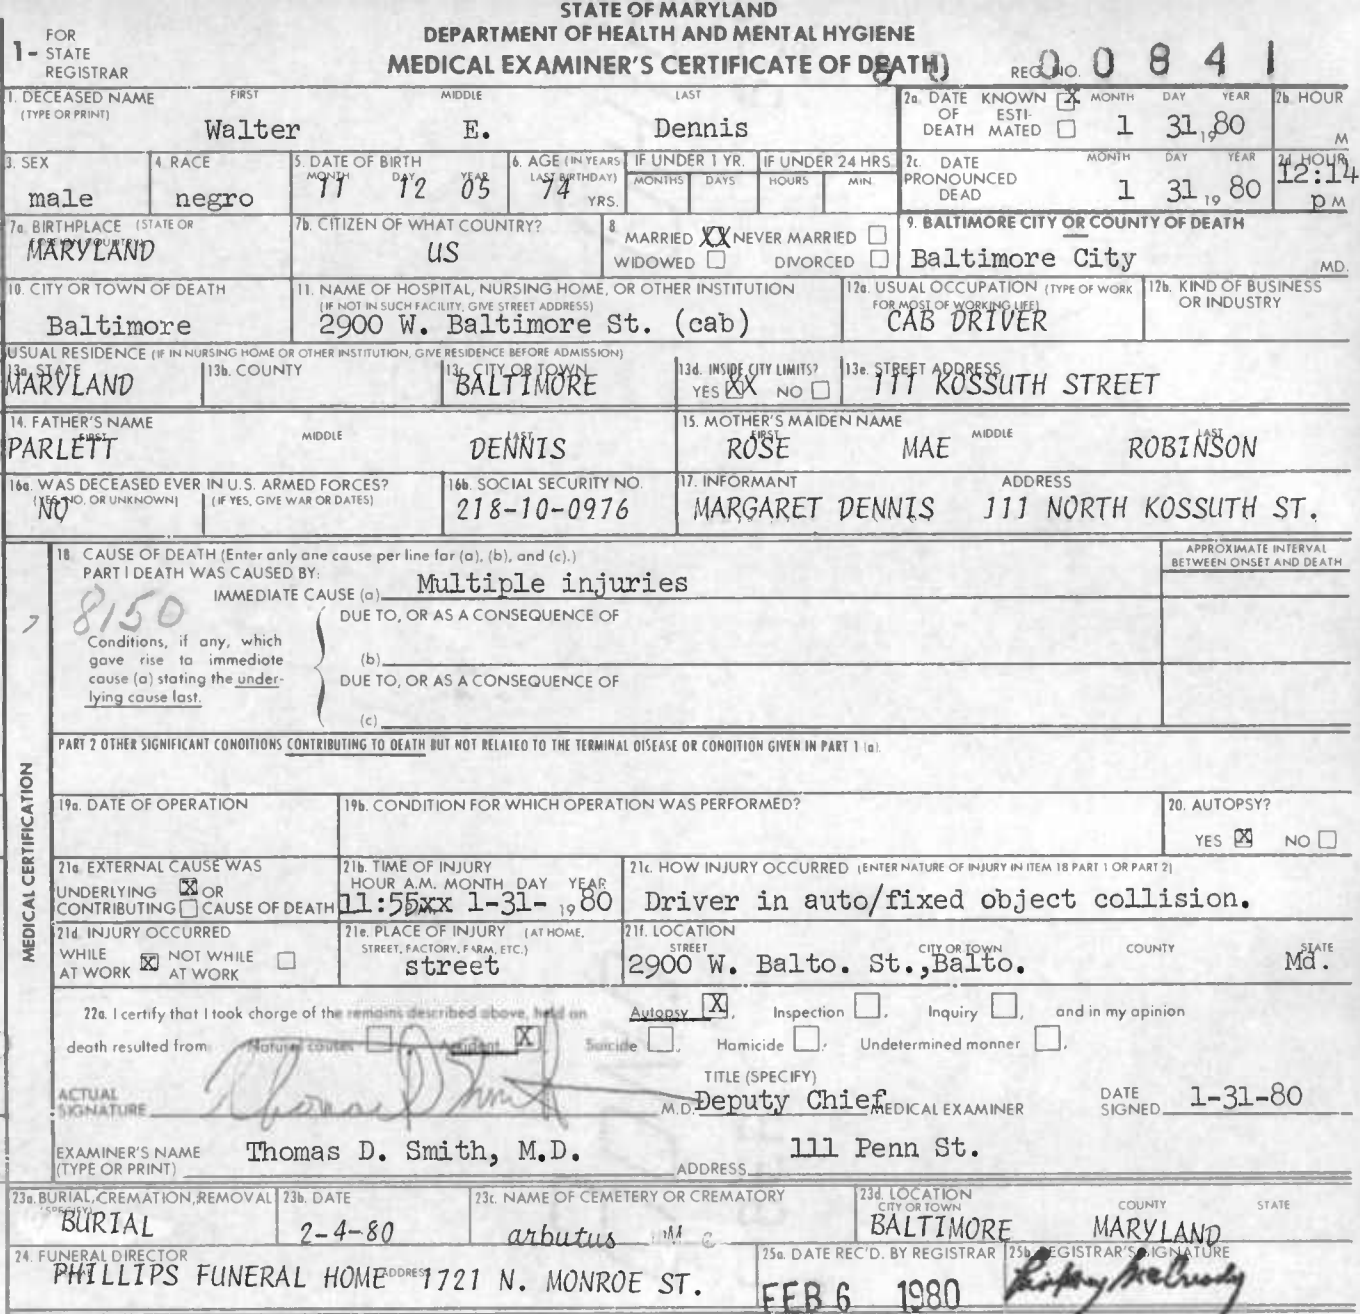 STATE OF MARYLAND
DEPARTMENT OF HEALTH AND MENTAL HYGIENE
MEDICAL EXAMINER'S CERTIFICATE OF DEATH
1- FOR STATE REGISTRAR
REG. NO. 00841
1. DECEASED NAME (TYPE OR PRINT) FIRST MIDDLE LAST
Walter E. Dennis
2a. DATE OF DEATH KNOWN X ESTIMATED MONTH DAY YEAR
1 31, 1980
2b. HOUR M
3. SEX
male
4. RACE
negro
5. DATE OF BIRTH MONTH DAY YEAR
11 12 05
6. AGE (IN YEARS LAST BIRTHDAY)
74 YRS.
IF UNDER 1 YR. MONTHS DAYS
IF UNDER 24 HRS HOURS MIN.
2c. DATE PRONOUNCED DEAD MONTH DAY YEAR
1 31, 1980
2d. HOUR
12:14 p M
7a. BIRTHPLACE (STATE OR FOREIGN COUNTRY)
MARYLAND
7b. CITIZEN OF WHAT COUNTRY?
US
8. MARRIED XX NEVER MARRIED
WIDOWED DIVORCED
9. BALTIMORE CITY OR COUNTY OF DEATH
Baltimore City MD.
10. CITY OR TOWN OF DEATH
Baltimore
11. NAME OF HOSPITAL, NURSING HOME, OR OTHER INSTITUTION
(IF NOT IN SUCH FACILITY, GIVE STREET ADDRESS)
2900 W. Baltimore St. (cab)
12a. USUAL OCCUPATION (TYPE OF WORK FOR MOST OF WORKING LIFE)
CAB DRIVER
12b. KIND OF BUSINESS OR INDUSTRY
USUAL RESIDENCE (IF IN NURSING HOME OR OTHER INSTITUTION, GIVE RESIDENCE BEFORE ADMISSION)
13a. STATE
MARYLAND
13b. COUNTY
13c. CITY OR TOWN
BALTIMORE
13d. INSIDE CITY LIMITS?
YES XX NO
13e. STREET ADDRESS
111 KOSSUTH STREET
14. FATHER'S NAME FIRST MIDDLE LAST
PARLETT DENNIS
15. MOTHER'S MAIDEN NAME FIRST MIDDLE LAST
ROSE MAE ROBINSON
16a. WAS DECEASED EVER IN U.S. ARMED FORCES?
(YES, NO, OR UNKNOWN) (IF YES, GIVE WAR OR DATES)
NO
16b. SOCIAL SECURITY NO.
218-10-0976
17. INFORMANT ADDRESS
MARGARET DENNIS 111 NORTH KOSSUTH ST.
MEDICAL CERTIFICATION
18. CAUSE OF DEATH (Enter only one cause per line for (a), (b), and (c).)
APPROXIMATE INTERVAL BETWEEN ONSET AND DEATH
PART I DEATH WAS CAUSED BY:
IMMEDIATE CAUSE (a) Multiple injuries
8150
DUE TO, OR AS A CONSEQUENCE OF
Conditions, if any, which gave rise to immediate cause (a) stating the underlying cause last.
(b)
DUE TO, OR AS A CONSEQUENCE OF
(c)
PART 2 OTHER SIGNIFICANT CONDITIONS CONTRIBUTING TO DEATH BUT NOT RELATED TO THE TERMINAL DISEASE OR CONDITION GIVEN IN PART 1 (a).
19a. DATE OF OPERATION
19b. CONDITION FOR WHICH OPERATION WAS PERFORMED?
20. AUTOPSY?
YES X NO
21a. EXTERNAL CAUSE WAS
UNDERLYING X OR
CONTRIBUTING CAUSE OF DEATH
21b. TIME OF INJURY
HOUR A.M. MONTH DAY YEAR
11:55xx 1-31- 1980
21c. HOW INJURY OCCURRED (ENTER NATURE OF INJURY IN ITEM 18 PART 1 OR PART 2)
Driver in auto/fixed object collision.
21d. INJURY OCCURRED
WHILE AT WORK X NOT WHILE AT WORK
21e. PLACE OF INJURY (AT HOME, STREET, FACTORY, FARM, ETC.)
street
21f. LOCATION STREET CITY OR TOWN COUNTY STATE
2900 W. Balto. St.,Balto. Md.
22a. I certify that I took charge of the remains described above, held an Autopsy X, Inspection, Inquiry, and in my opinion
death resulted from Natural causes Accident X Suicide, Homicide, Undetermined manner.
ACTUAL SIGNATURE Thomas D Smith M.D.
TITLE (SPECIFY)
Deputy Chief MEDICAL EXAMINER
DATE SIGNED 1-31-80
EXAMINER'S NAME (TYPE OR PRINT) Thomas D. Smith, M.D.
ADDRESS 111 Penn St.
23a. BURIAL, CREMATION, REMOVAL (SPECIFY)
BURIAL
23b. DATE
2-4-80
23c. NAME OF CEMETERY OR CREMATORY
arbutus
23d. LOCATION CITY OR TOWN COUNTY STATE
BALTIMORE MARYLAND
24. FUNERAL DIRECTOR
PHILLIPS FUNERAL HOME ADDRESS 1721 N. MONROE ST.
25a. DATE REC'D. BY REGISTRAR
FEB 6 1980
25b. REGISTRAR'S SIGNATURE